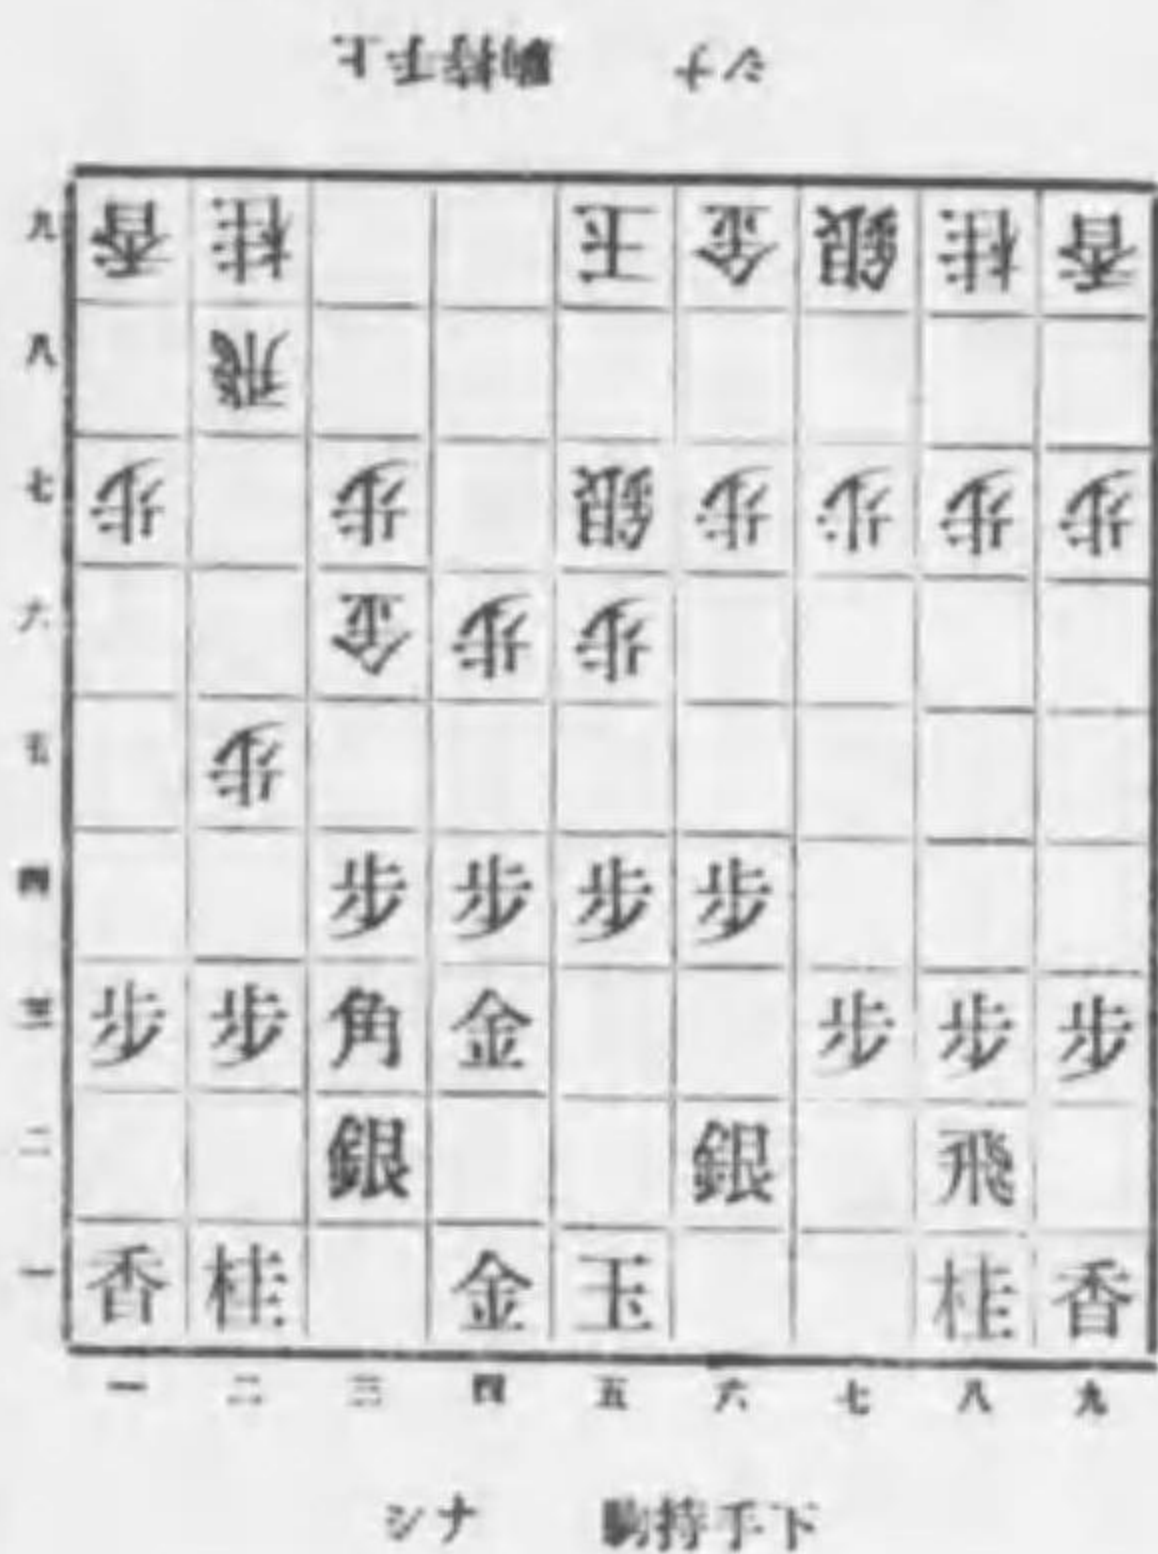 上手持駒 ナシ
九 香 桂 玉 金 銀 桂 香
八 飛
七 歩 歩 銀 歩 歩 歩 歩
六 金 歩 歩
五 歩
四 歩 歩 歩 歩
三 歩 歩 角 金 歩 歩 歩
二 銀 銀 飛
一 香 桂 金 玉 桂 香
一 二 三 四 五 六 七 八 九
下手持駒 ナシ